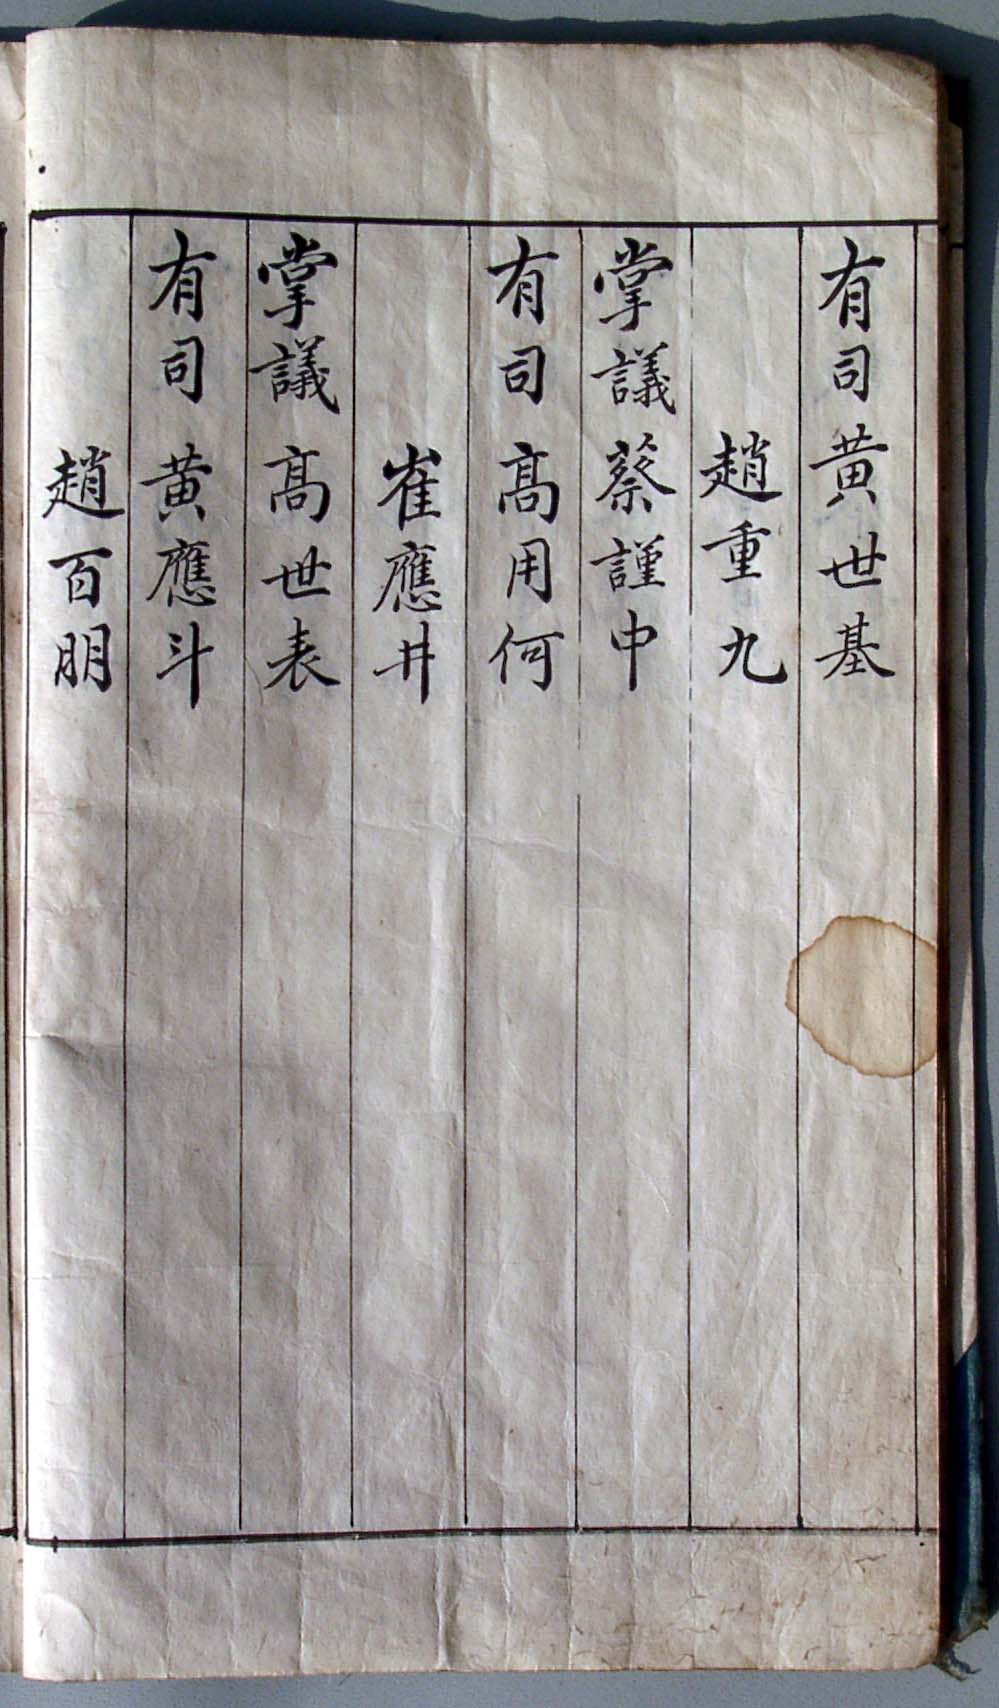 有司黃世基
趙重九
掌議蔡謹中
有司高用何
崔應井
掌議高世表
有司黃應斗
趙百朋